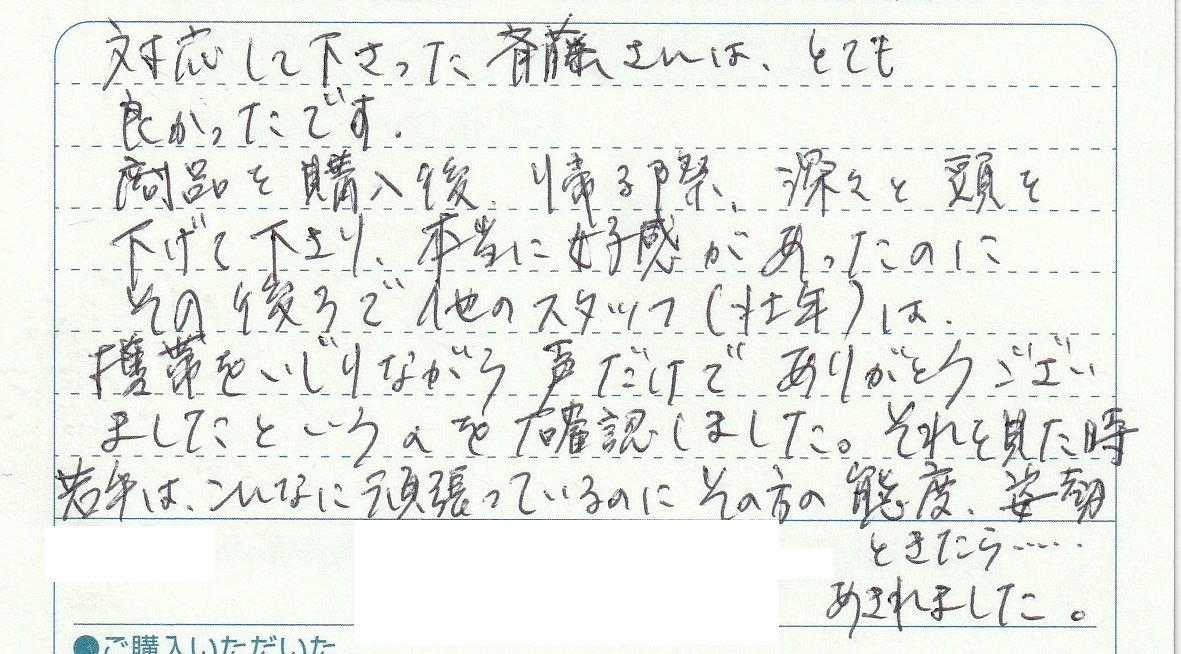 対応して下さった斉藤さんは、とても
良かったです.
商品を購入後、帰る際、深々と頭を
下げて下さり、本当に好感があったのに
その後ろで他のスタッフ(壮年)は、
携帯をいじりながら声だけでありがとうござい
ましたというのを確認しました。それを見た時
若年は、こんなに頑張っているのにその方の態度、姿勢
ときたら……
あきれました。
●ご購入いただいた